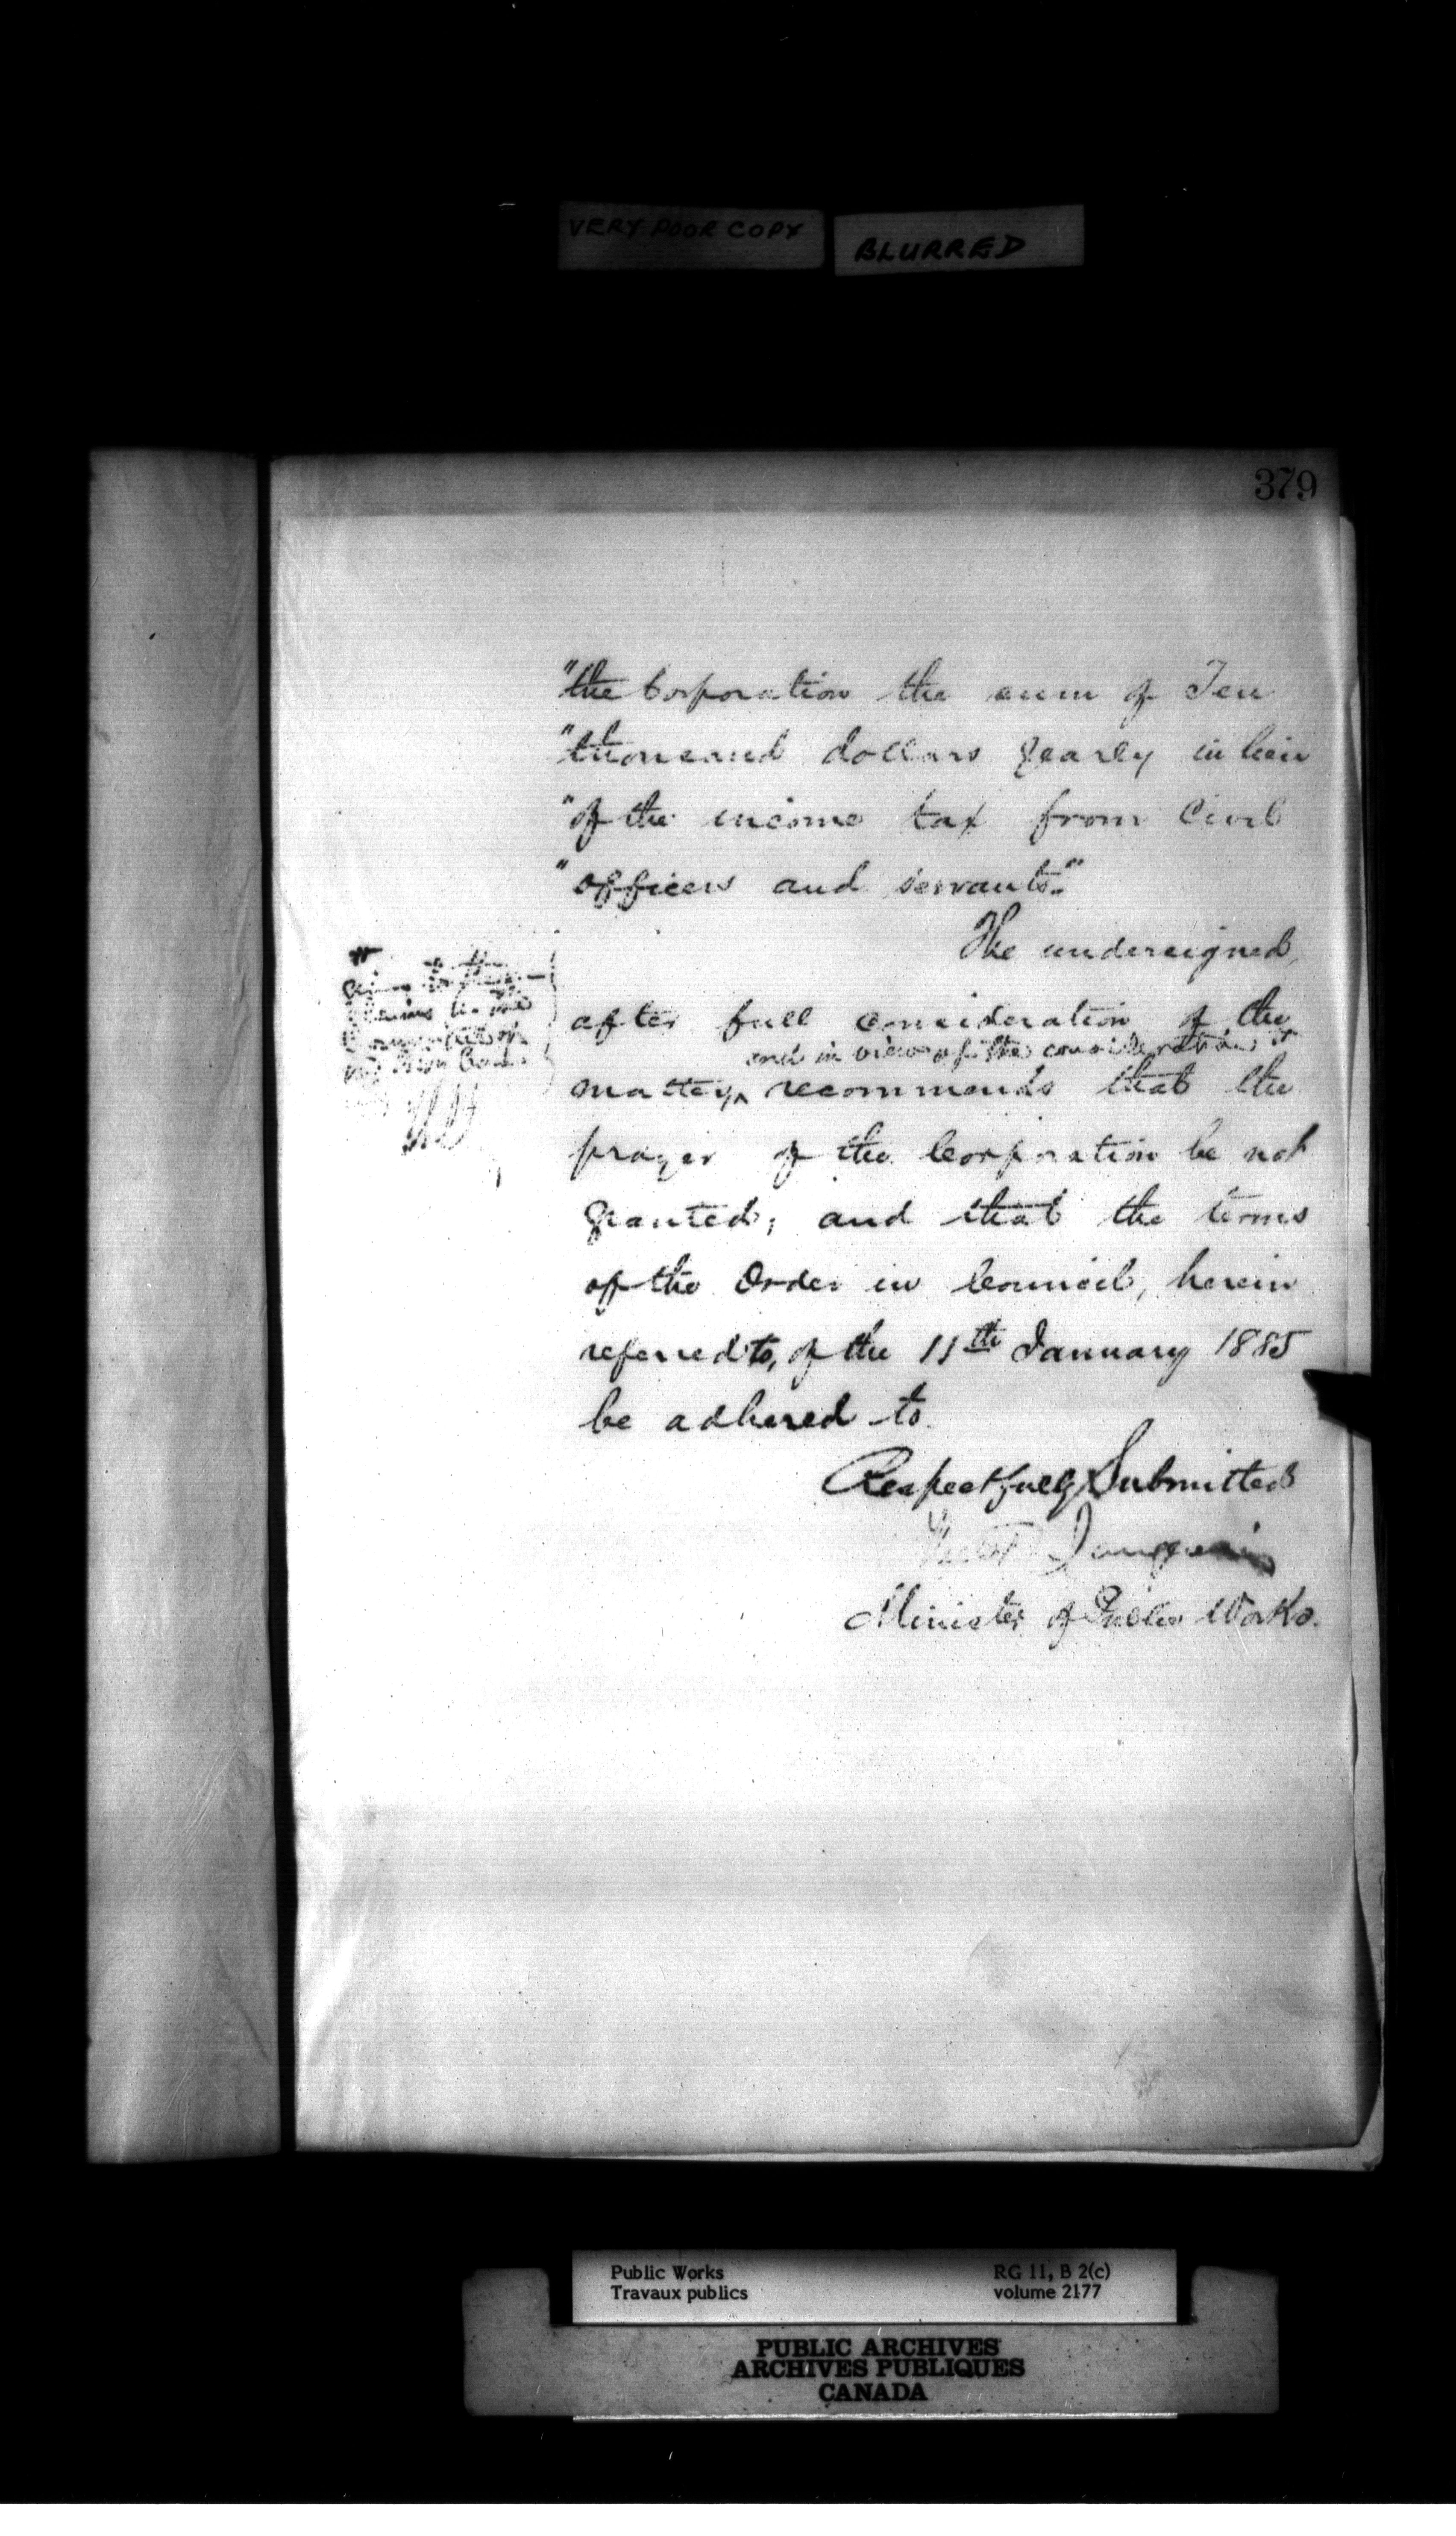 VERY POOR COPY
BLURRED
379
"the Corporation the sum of Ten
"thousand dollars yearly in lieu
"of the income tax from Civil
"officers and servants."
The undersigned,
after full consideration of the
and in view of the consideration
matter, recommends that the
prayer of the Corporation be not
granted; and that the terms
of the Order in Council, herein
referred to, of the 11th January 1885
be adhered to.
given to the
claims
Respectfully Submitted
Langevin
Minister of Public Works.
Public Works
Travaux publics
RG 11, B 2(c)
volume 2177
PUBLIC ARCHIVES
ARCHIVES PUBLIQUES
CANADA